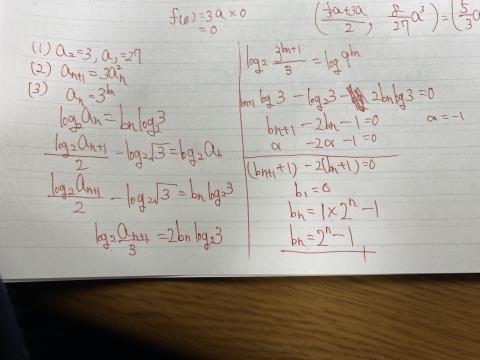 f(a)=3a×0
=0
(1) a₂=3, a₃=27
(2) aₙ₊₁=3aₙ²
(3) aₙ=3^bₙ
log₂aₙ=bₙlog₂3
log₂aₙ₊₁/2 -log₂√3=log₂aₙ
log₂aₙ₊₁/2 -log₂√3=bₙlog₂3
log₂aₙ₊₁/3=2bₙlog₂3
8/27 a³)=(5/3a
log₂ 3^bₙ₊₁/3 =log9^bₙ
bₙ₊₁log3-log₂3-2bₙlog3=0
bₙ₊₁-2bₙ-1=0 α=-1
α -2α-1=0
(bₙ₊₁+1)-2(bₙ+1)=0
b₁=0
bₙ=1×2ⁿ-1
bₙ=2ⁿ-1